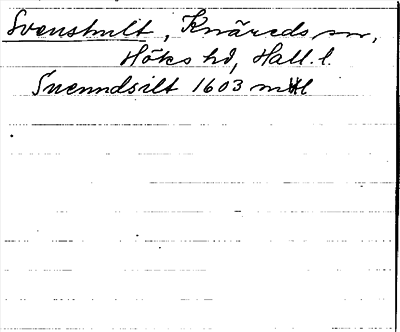 Svenshult, Knäreds sn,
Höks hd, Hall. l.
Suenndsilt 1603 mtl